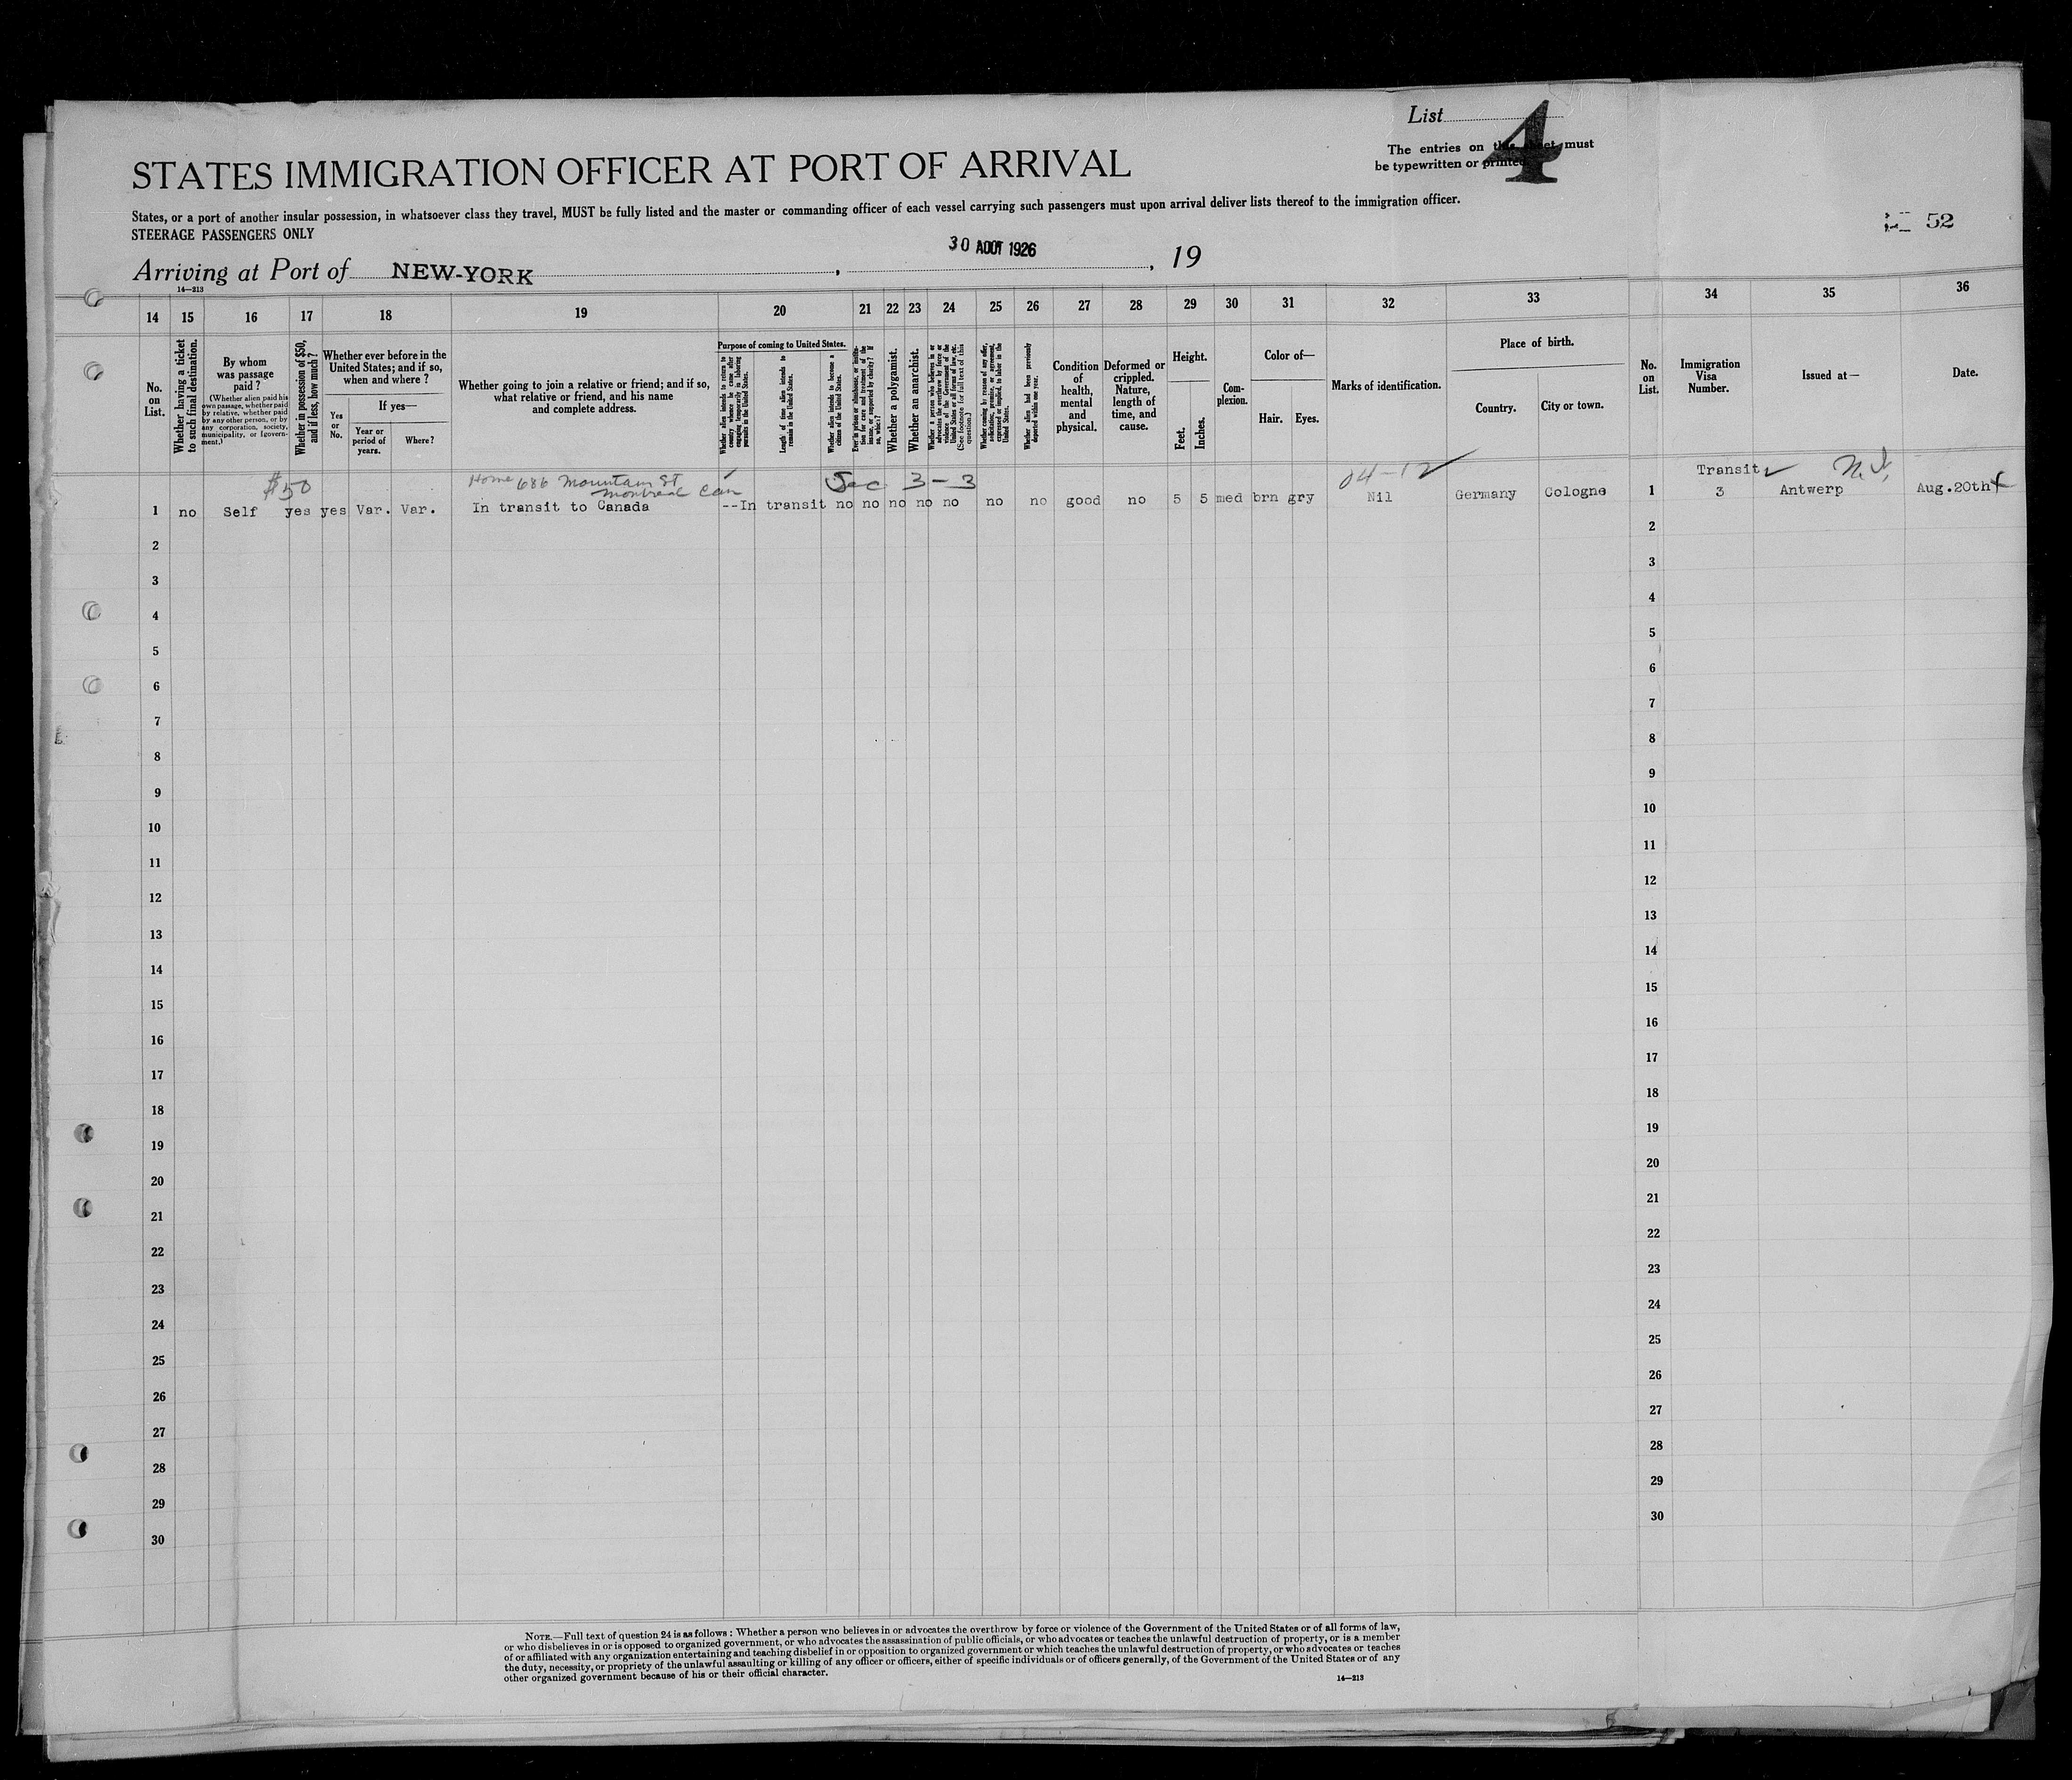 List 4
The entries on this sheet must
be typewritten or printed
STATES IMMIGRATION OFFICER AT PORT OF ARRIVAL
States, or a port of another insular possession, in whatsoever class they travel, MUST be fully listed and the master or commanding officer of each vessel carrying such passengers must upon arrival deliver lists thereof to the immigration officer.
STEERAGE PASSENGERS ONLY
52
Arriving at Port of NEW-YORK , 30 AOUT 1926 , 19
14—213
14 15 16 17 18 19 20 21 22 23 24 25 26 27 28 29 30 31 32 33 34 35 36
No. on List.
Whether having a ticket to such final destination.
By whom was passage paid?
(Whether alien paid his own passage, whether paid by relative, whether paid by any other person, or by any corporation, society, municipality, or fgovernment.)
Whether in possession of $50, and if less, how much?
Whether ever before in the United States; and if so, when and where?
Yes or No.
If yes—
Year or period of years.
Where?
Whether going to join a relative or friend; and if so, what relative or friend, and his name and complete address.
Purpose of coming to United States.
Whether alien intends to return to country whence he came after engaging temporarily in laboring pursuits in the United States.
Length of time alien intends to remain in the United States.
Whether alien intends to become a citizen of the United States.
Ever in prison or almshouse, or institution for care and treatment of the insane, or supported by charity? If so, which?
Whether a polygamist.
Whether an anarchist.
Whether a person who believes in or advocates the overthrow by force or violence of the Government of the United States or all forms of law, etc. (See footnote for full text of this question.)
Whether coming by reason of any offer, solicitation, promise, or agreement, expressed or implied, to labor in the United States.
Whether alien had been previously deported within one year.
Condition of health, mental and physical.
Deformed or crippled. Nature, length of time, and cause.
Height.
Feet. Inches.
Complexion.
Color of—
Hair. Eyes.
Marks of identification.
Place of birth.
Country. City or town.
No. on List.
Immigration Visa Number.
Issued at—
Date.
$50 Home 686 Mountain St Sec 3-3 04-12 Transit
Montreal Can
1 no Self yes yes Var. Var. In transit to Canada --In transit no no no no no no no good no 5 5 med brn gry Nil Germany Cologne 1 3 Antwerp Aug.20th
2 2
3 3
4 4
5 5
6 6
7 7
8 8
9 9
10 10
11 11
12 12
13 13
14 14
15 15
16 16
17 17
18 18
19 19
20 20
21 21
22 22
23 23
24 24
25 25
26 26
27 27
28 28
29 29
30 30
NOTE.—Full text of question 24 is as follows: Whether a person who believes in or advocates the overthrow by force or violence of the Government of the United States or of all forms of law,
or who disbelieves in or is opposed to organized government, or who advocates the assassination of public officials, or who advocates or teaches the unlawful destruction of property, or is a member
of or affiliated with any organization entertaining and teaching disbelief in or opposition to organized government or which teaches the unlawful destruction of property, or who advocates or teaches
the duty, necessity, or propriety of the unlawful assaulting or killing of any officer or officers, either of specific individuals or of officers generally, of the Government of the United States or of any
other organized government because of his or their official character.
14—213